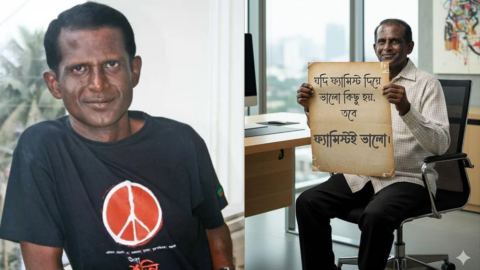 যদি ফ্যামিস্ট দিয়ে
ভালো কিছু হয়.
তবে
ফ্যামিস্টই ভালো।